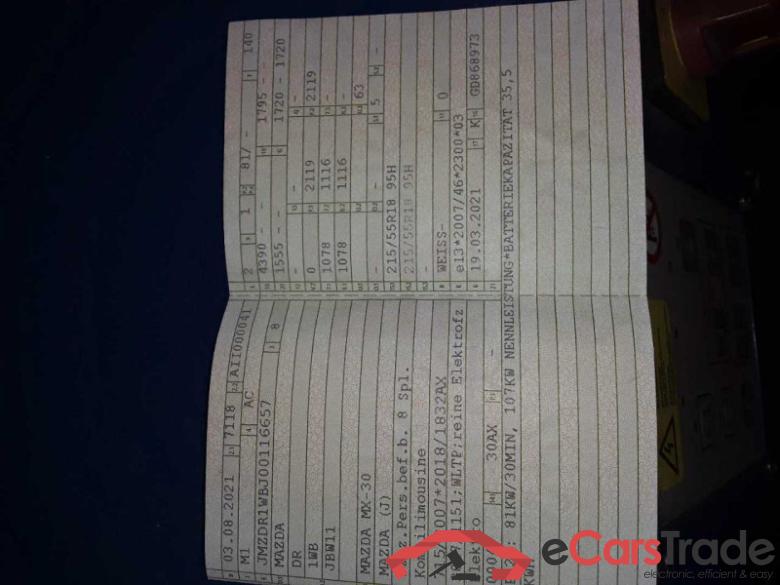 03.08.2021 7118 AII000041
M1 AC
JMZDR1WBJ00116657 8
MAZDA
DR
1WB
JBW11
MAZDA MX-30
MAZDA (J)
z.Pers.bef.b. 8 Spl.
Kombilimousine
715/2007*2018/1832AX
1151;WLTP;reine Elektrofz
Elektro
30AX -
2 1 81/ - 140
4390 - - 1795 - -
1555 - - 1720 - 1720
- - -
0 2119 2119
1078 1116 -
1078 1116 -
- - 63
- - 5 -
215/55R18 95H
215/55R18 95H
-
WEISS- 0
e13*2007/46*2300*03
19.03.2021 K GD868973
: 81KW/30MIN, 107KW NENNLEISTUNG*BATTERIEKAPAZITÄT 35,5
KWH
eCarsTrade
electronic, efficient & easy